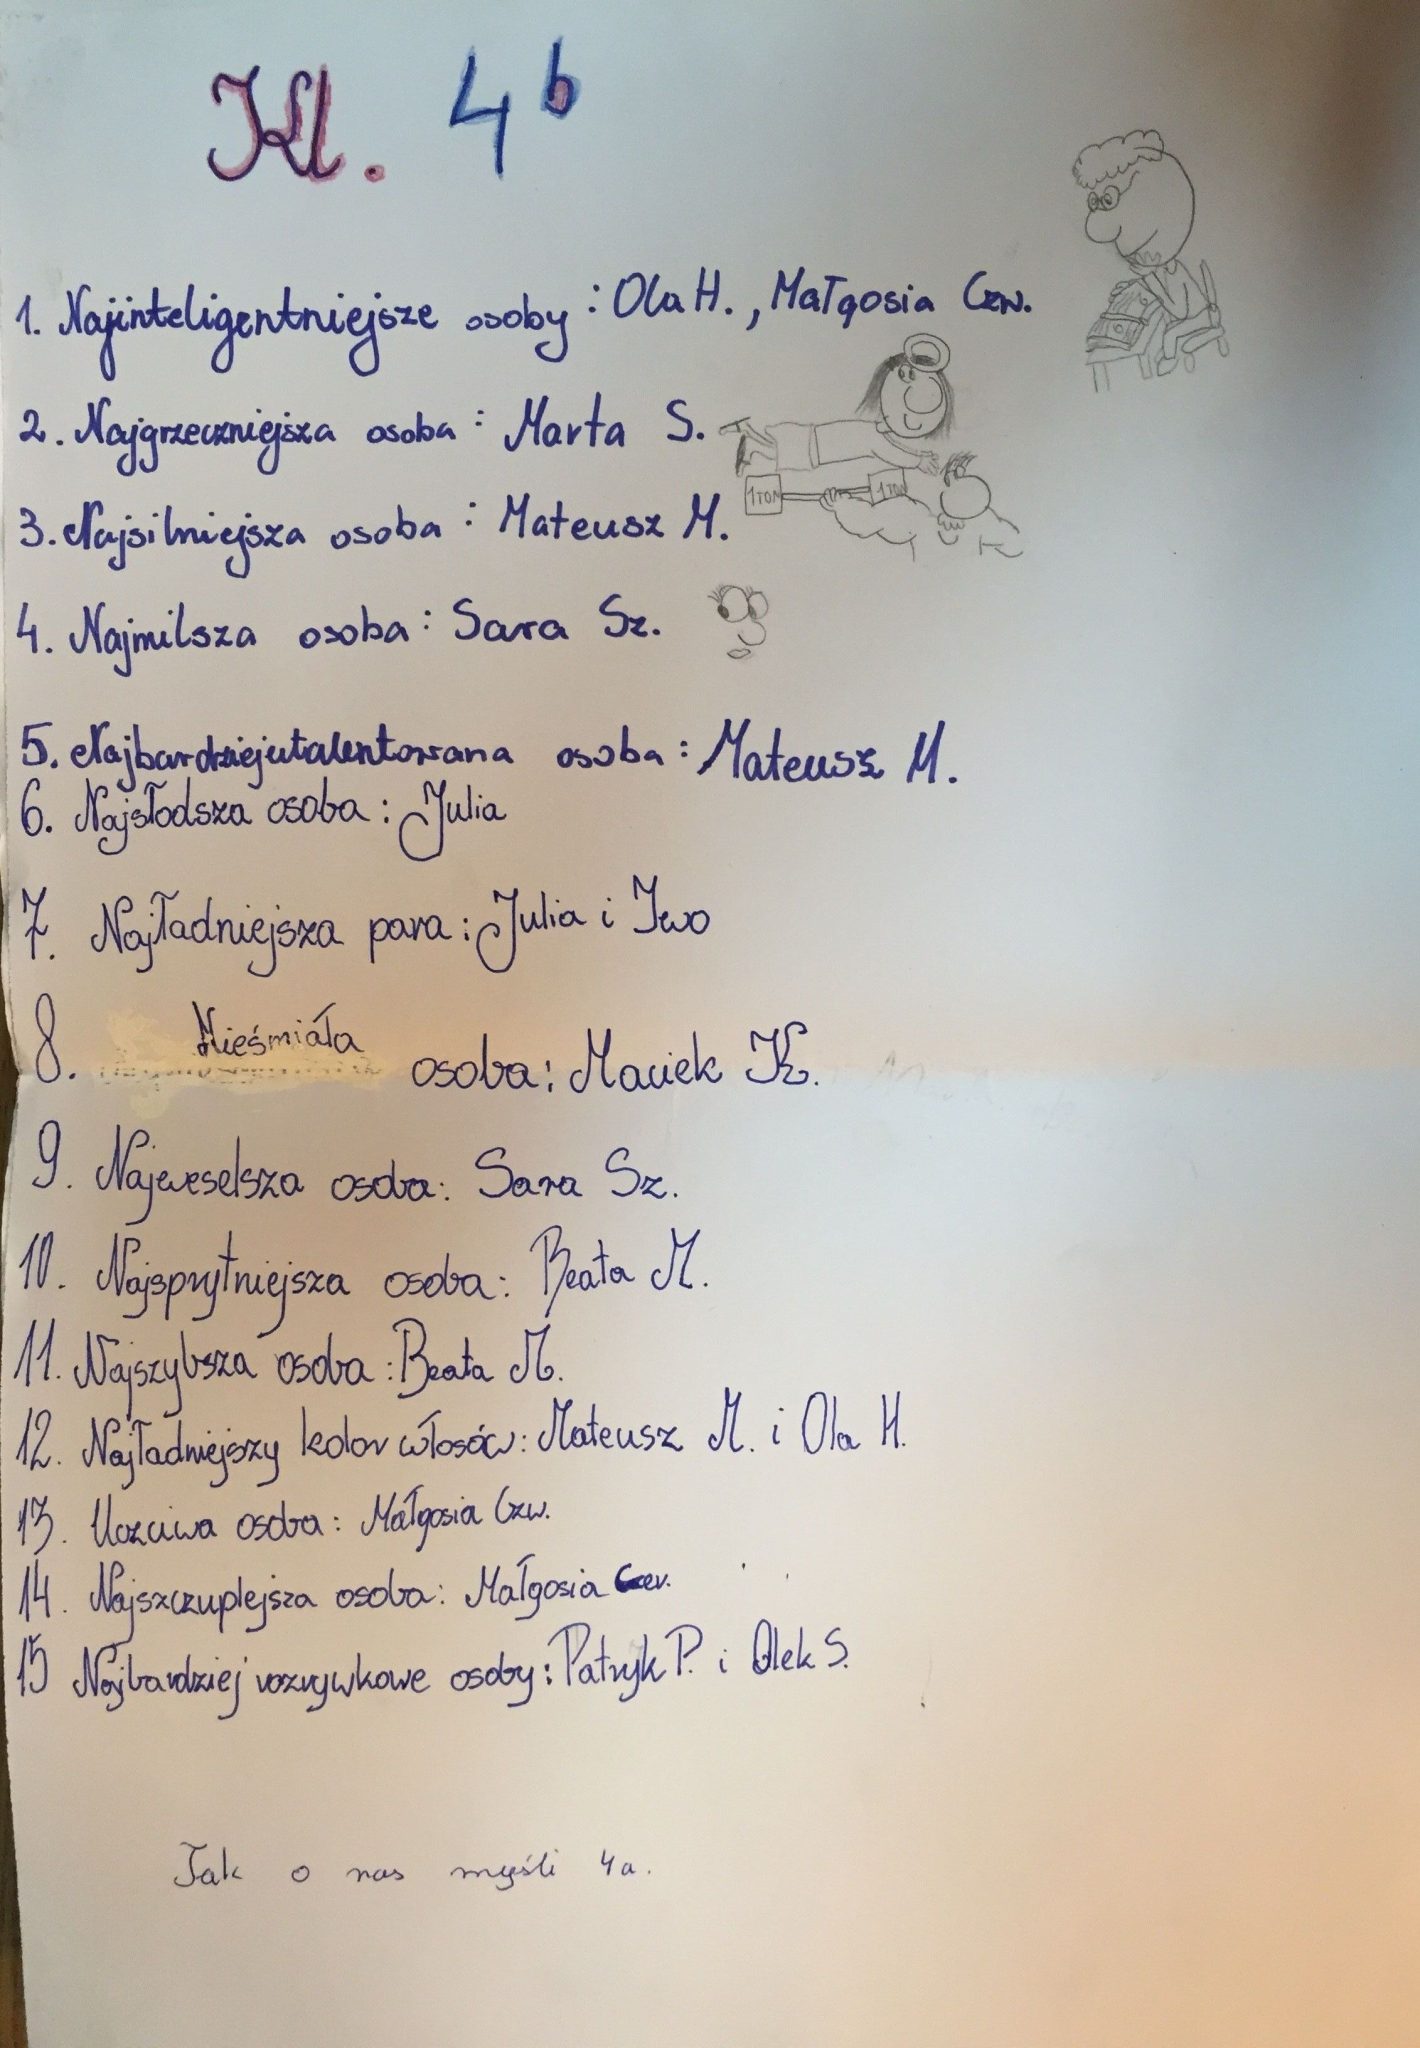 Kl. 4b
1. Najinteligentniejsze osoby : Ola H., Małgosia Czw.
2. Najgrzeczniejsza osoba : Marta S.
1TON 1TON
3. Najsilniejsza osoba : Mateusz M.
4. Najmilsza osoba : Sara Sz.
5. Najbardziejutalentowana osoba : Mateusz M.
6. Najsłodsza osoba : Julia
7. Najładniejsza para : Julia i Iwo
8. Nieśmiała osoba : Maciek K.
9. Najweselsza osoba : Sara Sz.
10. Najsprytniejsza osoba : Beata M.
11. Najszybsza osoba : Beata M.
12. Najładniejszy kolor włosów : Mateusz M. i Ola H.
13. Uczciwa osoba : Małgosia Czw.
14. Najszczuplejsza osoba : Małgosia
15 Najbardziej rozrywkowe osoby : Patryk P. i Olek S.
Tak o nas myśli 4a.